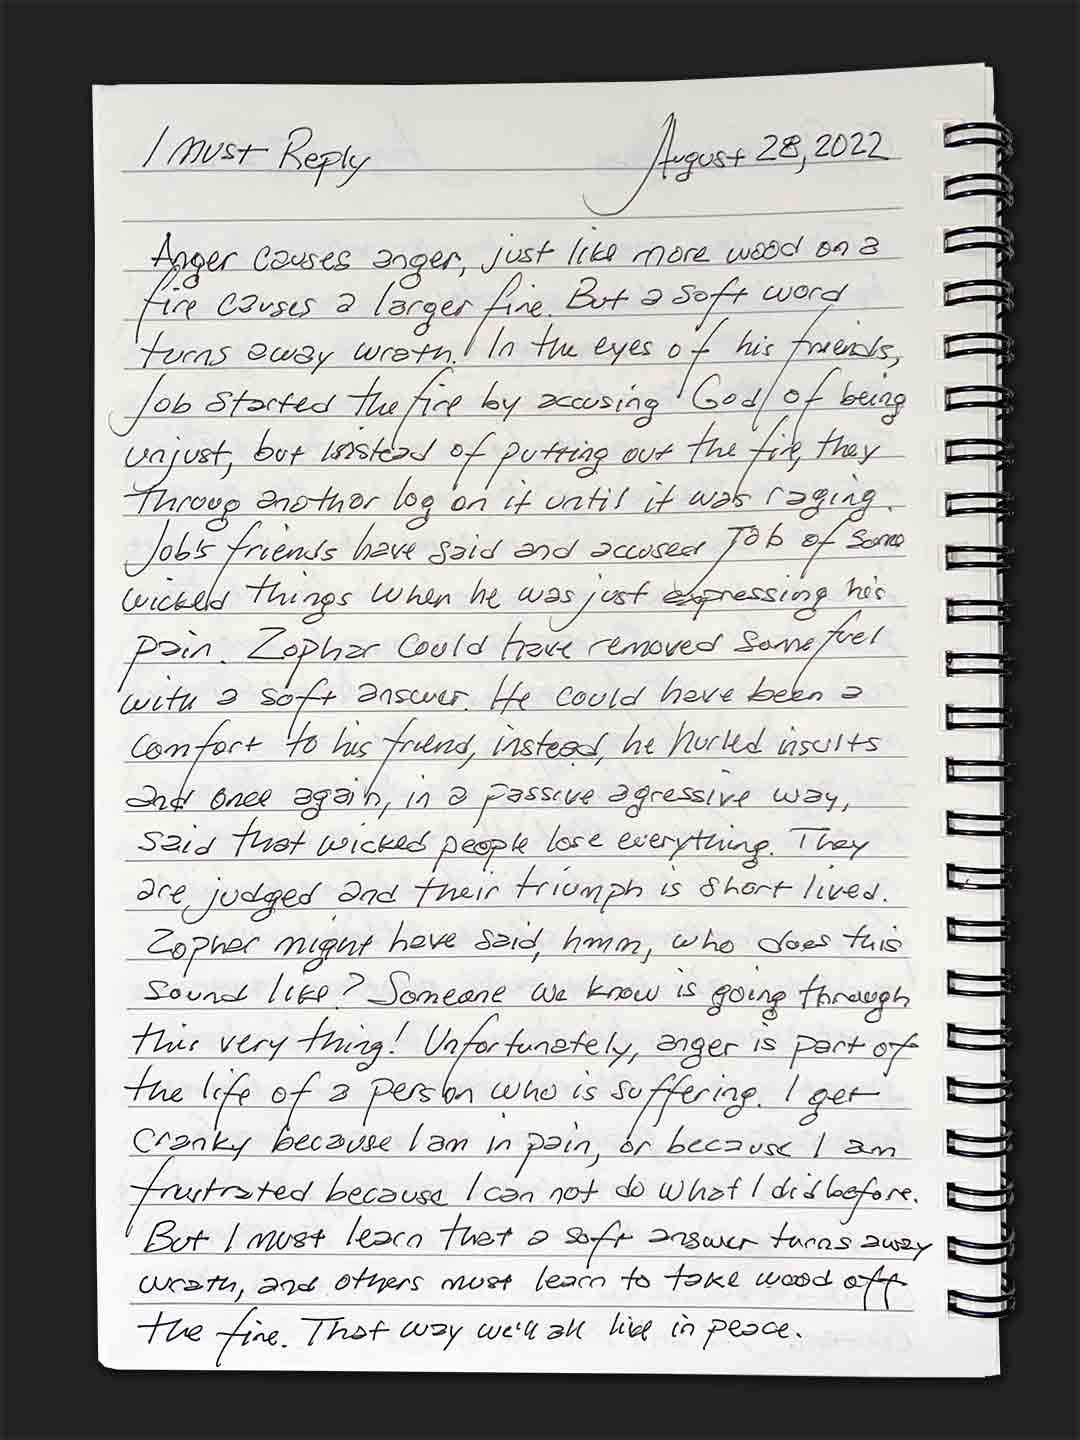 I Must Reply August 28, 2022
Anger causes anger, just like more wood on a
fire causes a larger fire. But a soft word
turns away wrath. In the eyes of his friends,
Job started the fire by accusing God of being
unjust, but instead of putting out the fire, they
throug another log on it until it was raging.
Job's friends have said and accused Job of some
wicked things when he was just expressing his
pain. Zophar could have removed some fuel
with a soft answer. He could have been a
comfort to his friend, instead, he hurled insults
and once again, in a passive agressive way,
said that wicked people lose everything. They
are judged and their triumph is short lived.
Zophar might have said, hmm, who does this
sound like? Someone we know is going through
this very thing! Unfortunately, anger is part of
the life of a person who is suffering. I get
cranky because I am in pain, or because I am
frustrated because I can not do what I did before.
But I must learn that a soft answer turns away
wrath, and others must learn to take wood off
the fire. That way we'll all live in peace.